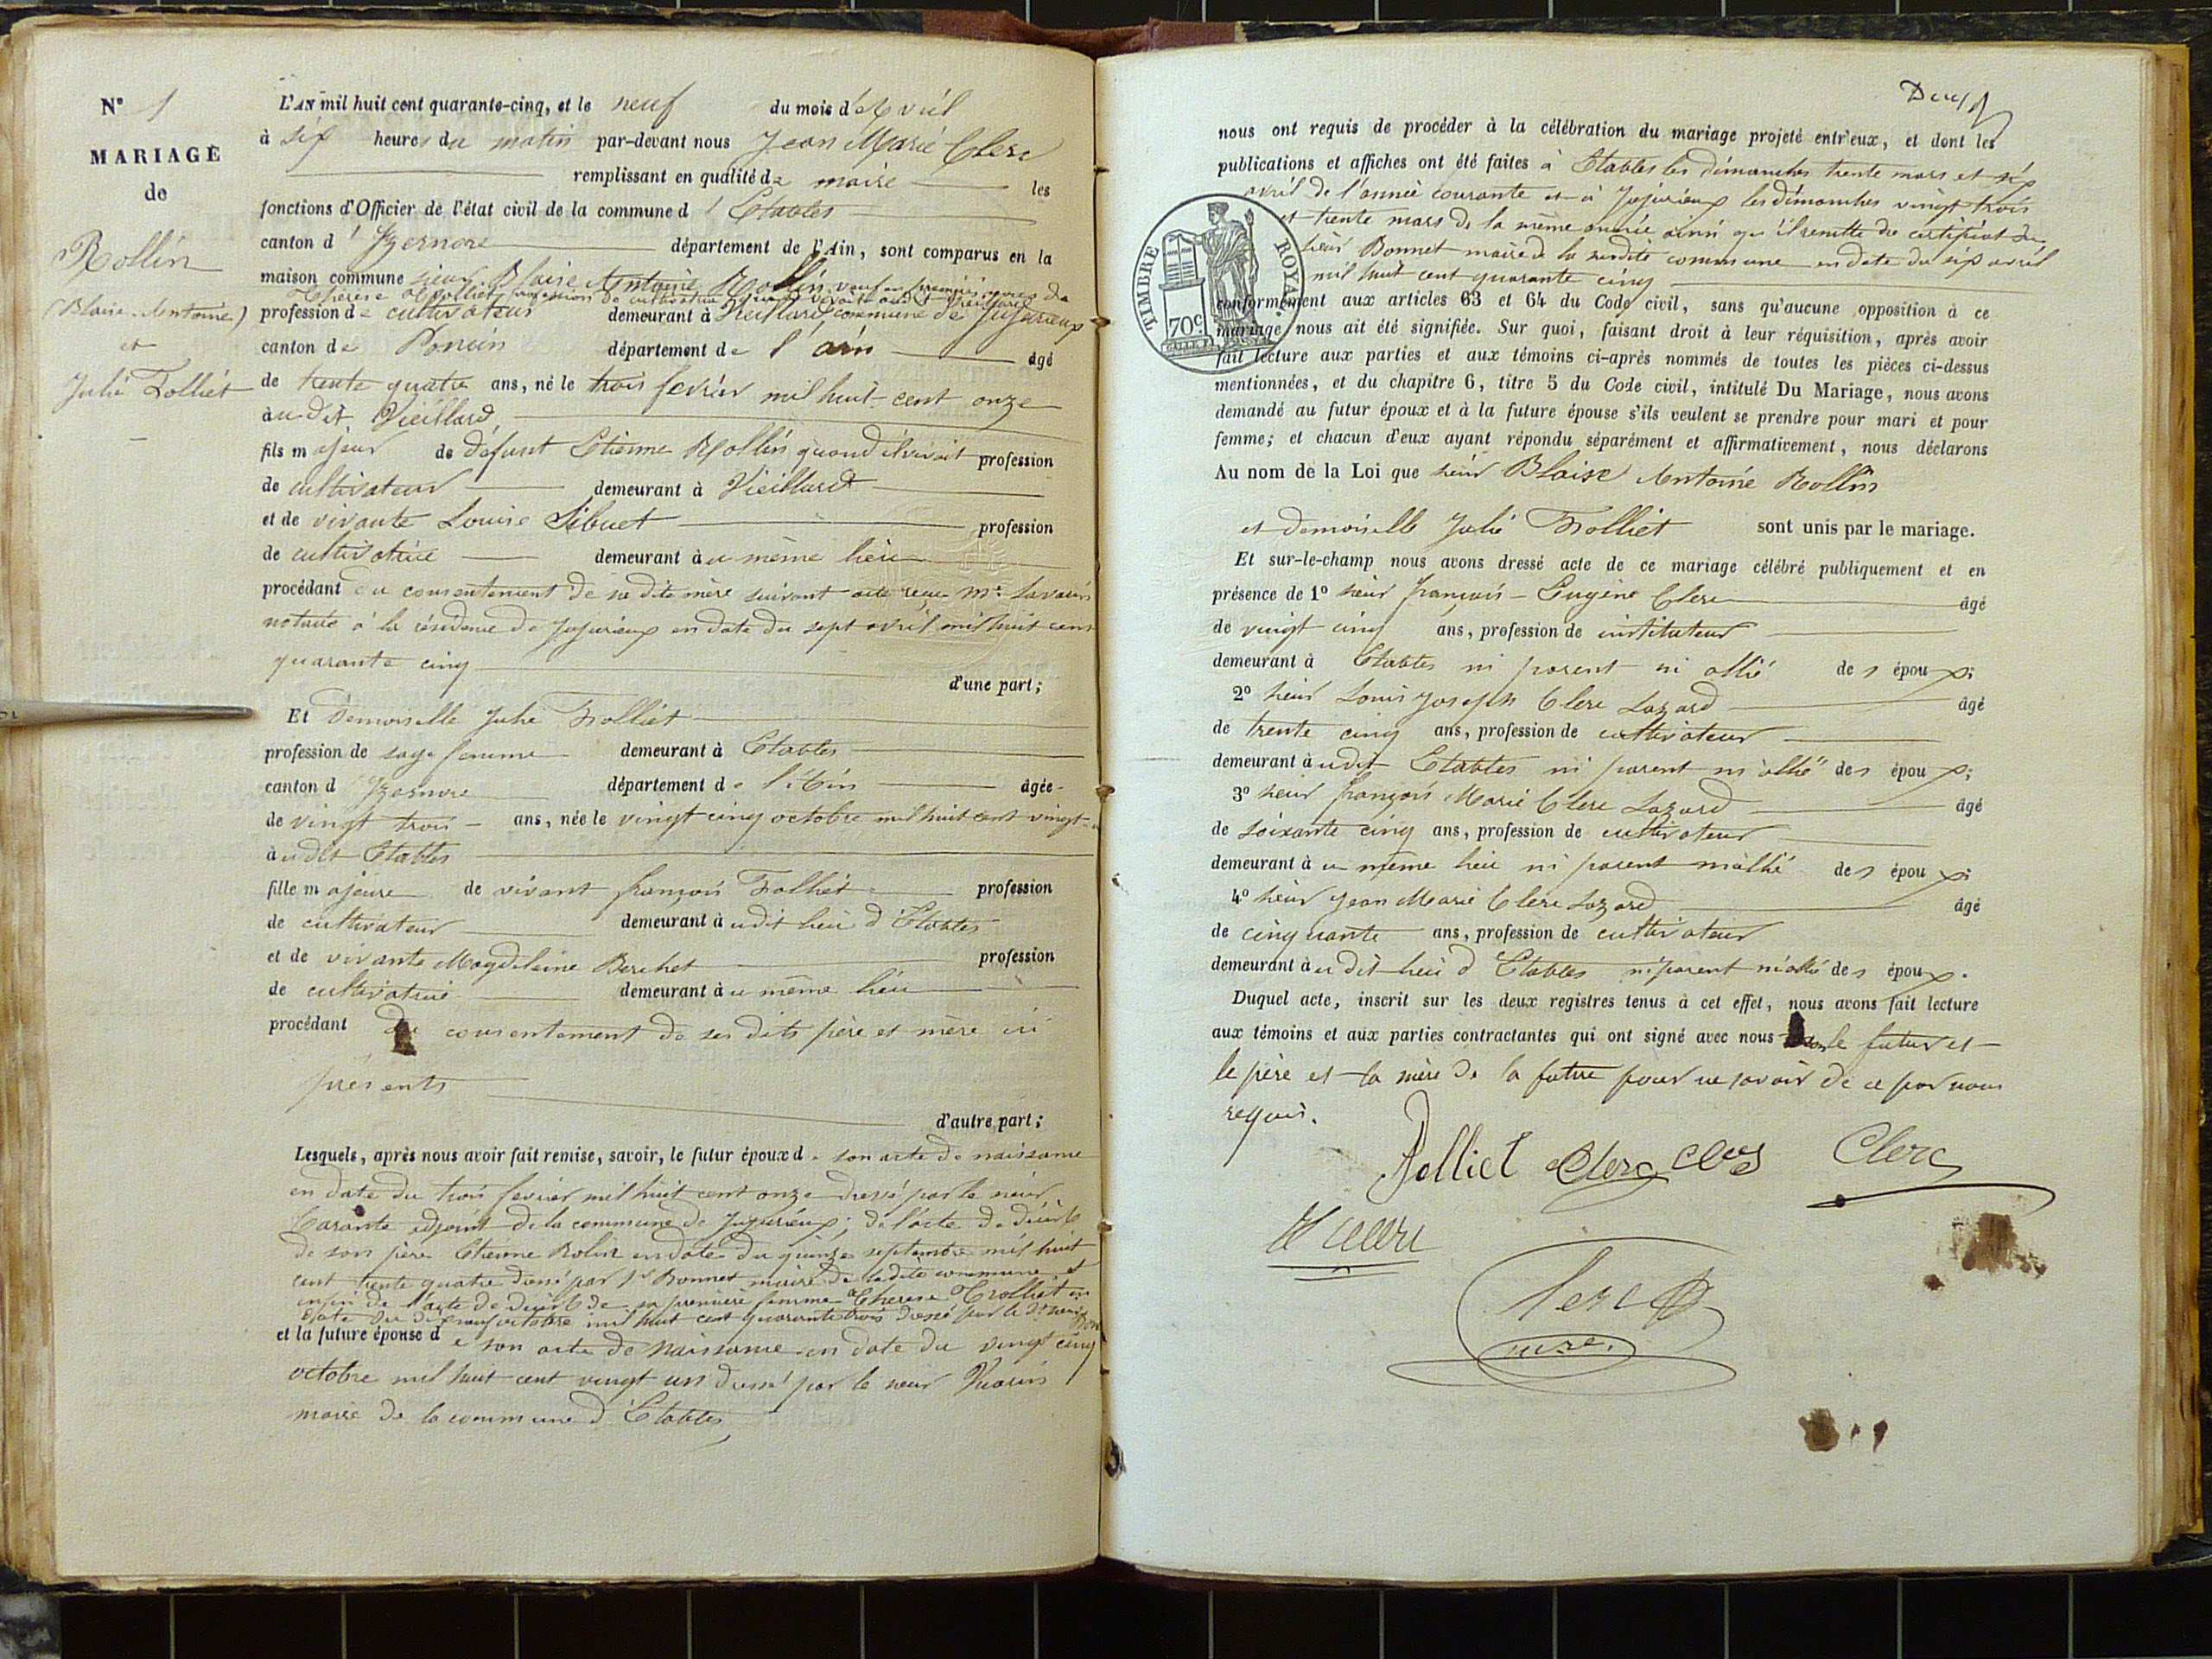 N° 1
MARIAGE
de
Rollin
(Blaise-Antoine)
et
Julie Trolliet
L'AN mil huit cent quarante-cinq, et le neuf du mois d'Avril
à six heures du matin par-devant nous Jean Marie Clerc
remplissant en qualité de maire les
fonctions d'Officier de l'état civil de la commune d'Etables
canton d'Izernore département de l'Ain, sont comparus en la
maison commune sieur Blaise Antoine Rollin veuf en premières noces de
Thérèse Trolliet profession de cultivatrice quand vivait audit Vieillard
profession de cultivateur demeurant à Vieillard commune de Jujurieux
canton de Poncin département de l'ain âgé
de trente quatre ans, né le trois fevrier mil huit cent onze
au dit Vieillard
fils majeur de défunt Etienne Rollin quand il vivait profession
de cultivateur demeurant à Vieillard
et de vivante Louise Sibuet profession
de cultivatrice demeurant au même lieu
procédant du consentement de sa dite mère suivant acte reçu Me Savarin
notaire à la résidence de Jujurieux en date du sept avril mil huit cent
quarante cinq
d'une part;
Et Demoiselle Julie Trolliet
profession de sage femme demeurant à Etables
canton d'Izernore département de l'Ain âgée
de vingt trois ans, née le vingt cinq octobre mil huit cent vingt-un
audit Etables
fille majeure de vivant françois Trolliet profession
de cultivateur demeurant audit lieu d'Etables
et de vivante Magdelaine Berchet profession
de cultivatrice demeurant au même lieu
procédant du consentement de ses dits père et mère ici
présents
d'autre part;
Lesquels, après nous avoir fait remise, savoir, le futur époux de son acte de naissance
en date du trois fevrier mil huit cent onze dressé par le sieur
Carante adjoint de la commune de Jujurieux; de l'acte de décès
de son père Etienne Rolin en date du quinze septembre mil huit
cent trente quatre dressé par Sr Bonnet maire de ladite commune et
enfin de l'acte de décès de sa première femme Therese Trolliet en
date du dixneuf octobre mil huit cent quarante trois dressé par le dt sieur Bonnet
et la future épouse de son acte de naissance en date du vingt cinq
octobre mil huit cent vingt un dressé par le sieur Vuarin
maire de la commune d'Etables
Deux
nous ont requis de procéder à la célébration du mariage projeté entr'eux, et dont les
publications et affiches ont été faites à Etables les dimanches trente mars et six
avril de l'année courante et à Jujurieux les dimanches vingt trois
et trente mars de la même année ainsi qu'il resulte du certificat du
sieur Bonnet maire de la susdite commune en date du six avril
mil huit cent quarante cinq
TIMBRE ROYAL
70c.
conformément aux articles 63 et 64 du Code civil, sans qu'aucune opposition à ce
mariage nous ait été signifiée. Sur quoi, faisant droit à leur réquisition, après avoir
fait lecture aux parties et aux témoins ci-après nommés de toutes les pièces ci-dessus
mentionnées, et du chapitre 6, titre 5 du Code civil, intitulé Du Mariage, nous avons
demandé au futur époux et à la future épouse s'ils veulent se prendre pour mari et pour
femme; et chacun d'eux ayant répondu séparément et affirmativement, nous déclarons
Au nom de la Loi que sieur Blaise Antoine Rollin
et demoiselle Julie Trolliet sont unis par le mariage.
Et sur-le-champ nous avons dressé acte de ce mariage célébré publiquement et en
présence de 1° sieur françois-Eugène Clerc âgé
de vingt cinq ans, profession de instituteur
demeurant à Etables ni parent ni allié des époux;
2° sieur Louis Joseph Clerc Lazard âgé
de trente cinq ans, profession de cultivateur
demeurant audit Etables ni parent ni allié des époux;
3° sieur françois Marie Clerc Lazard âgé
de soixante cinq ans, profession de cultivateur
demeurant au même lieu ni parent ni allié des époux;
4° sieur Jean Marie Clerc Lazard âgé
de cinquante ans, profession de cultivateur
demeurant audit lieu d'Etables ni parent ni allié des époux.
Duquel acte, inscrit sur les deux registres tenus à cet effet, nous avons fait lecture
aux témoins et aux parties contractantes qui ont signé avec nous le futur et
le père et la mère de la future pour ne savoir de ce par nous
requis.
Trolliet Clerc Clerc Clerc
Clerc
Clerc
mre.